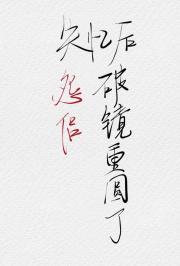 失忆后
怨侣
破镜重圆了